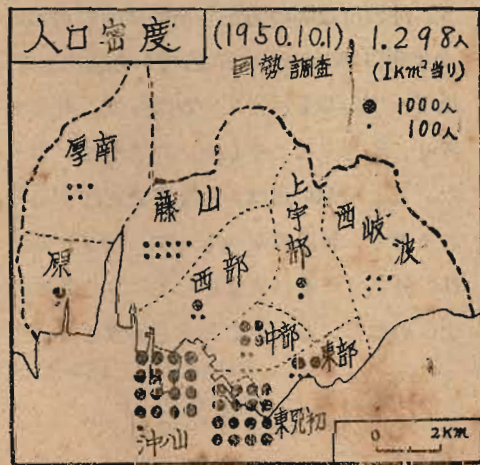 人口密度
(1950.10.1)
国勢調査
1.298人
(1km²当り)
1000人
100人
厚南
藤山
上宇部
西岐波
原
西部
中部
東部
沖ノ山
東見初
0 2KM